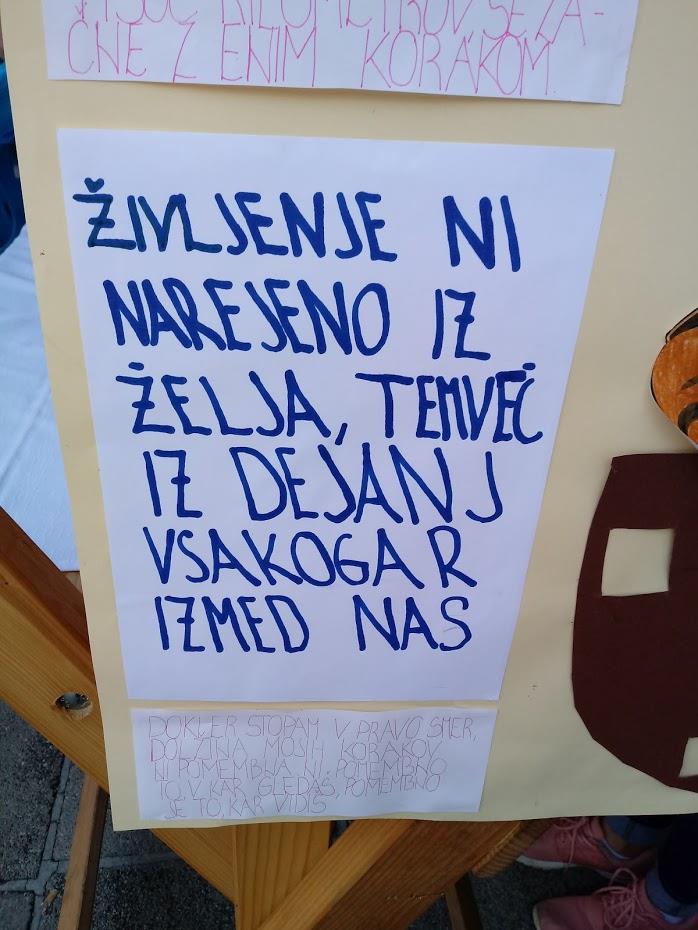 TISOČ KILOMETROV SE ZA-
ČNE Z ENIM KORAKOM
ŽIVLJENJE NI
NAREJENO IZ
ŽELJA, TEMVEČ
IZ DEJANJ
VSAKOGAR
IZMED NAS
DOKLER STOPAM V PRAVO SMER,
DOLŽINA MOJIH KORAKOV
NI POMEMBNA. NI POMEMBNO
TO, V KAR GLEDAŠ, POMEMBNO
JE TO, KAR VIDIŠ